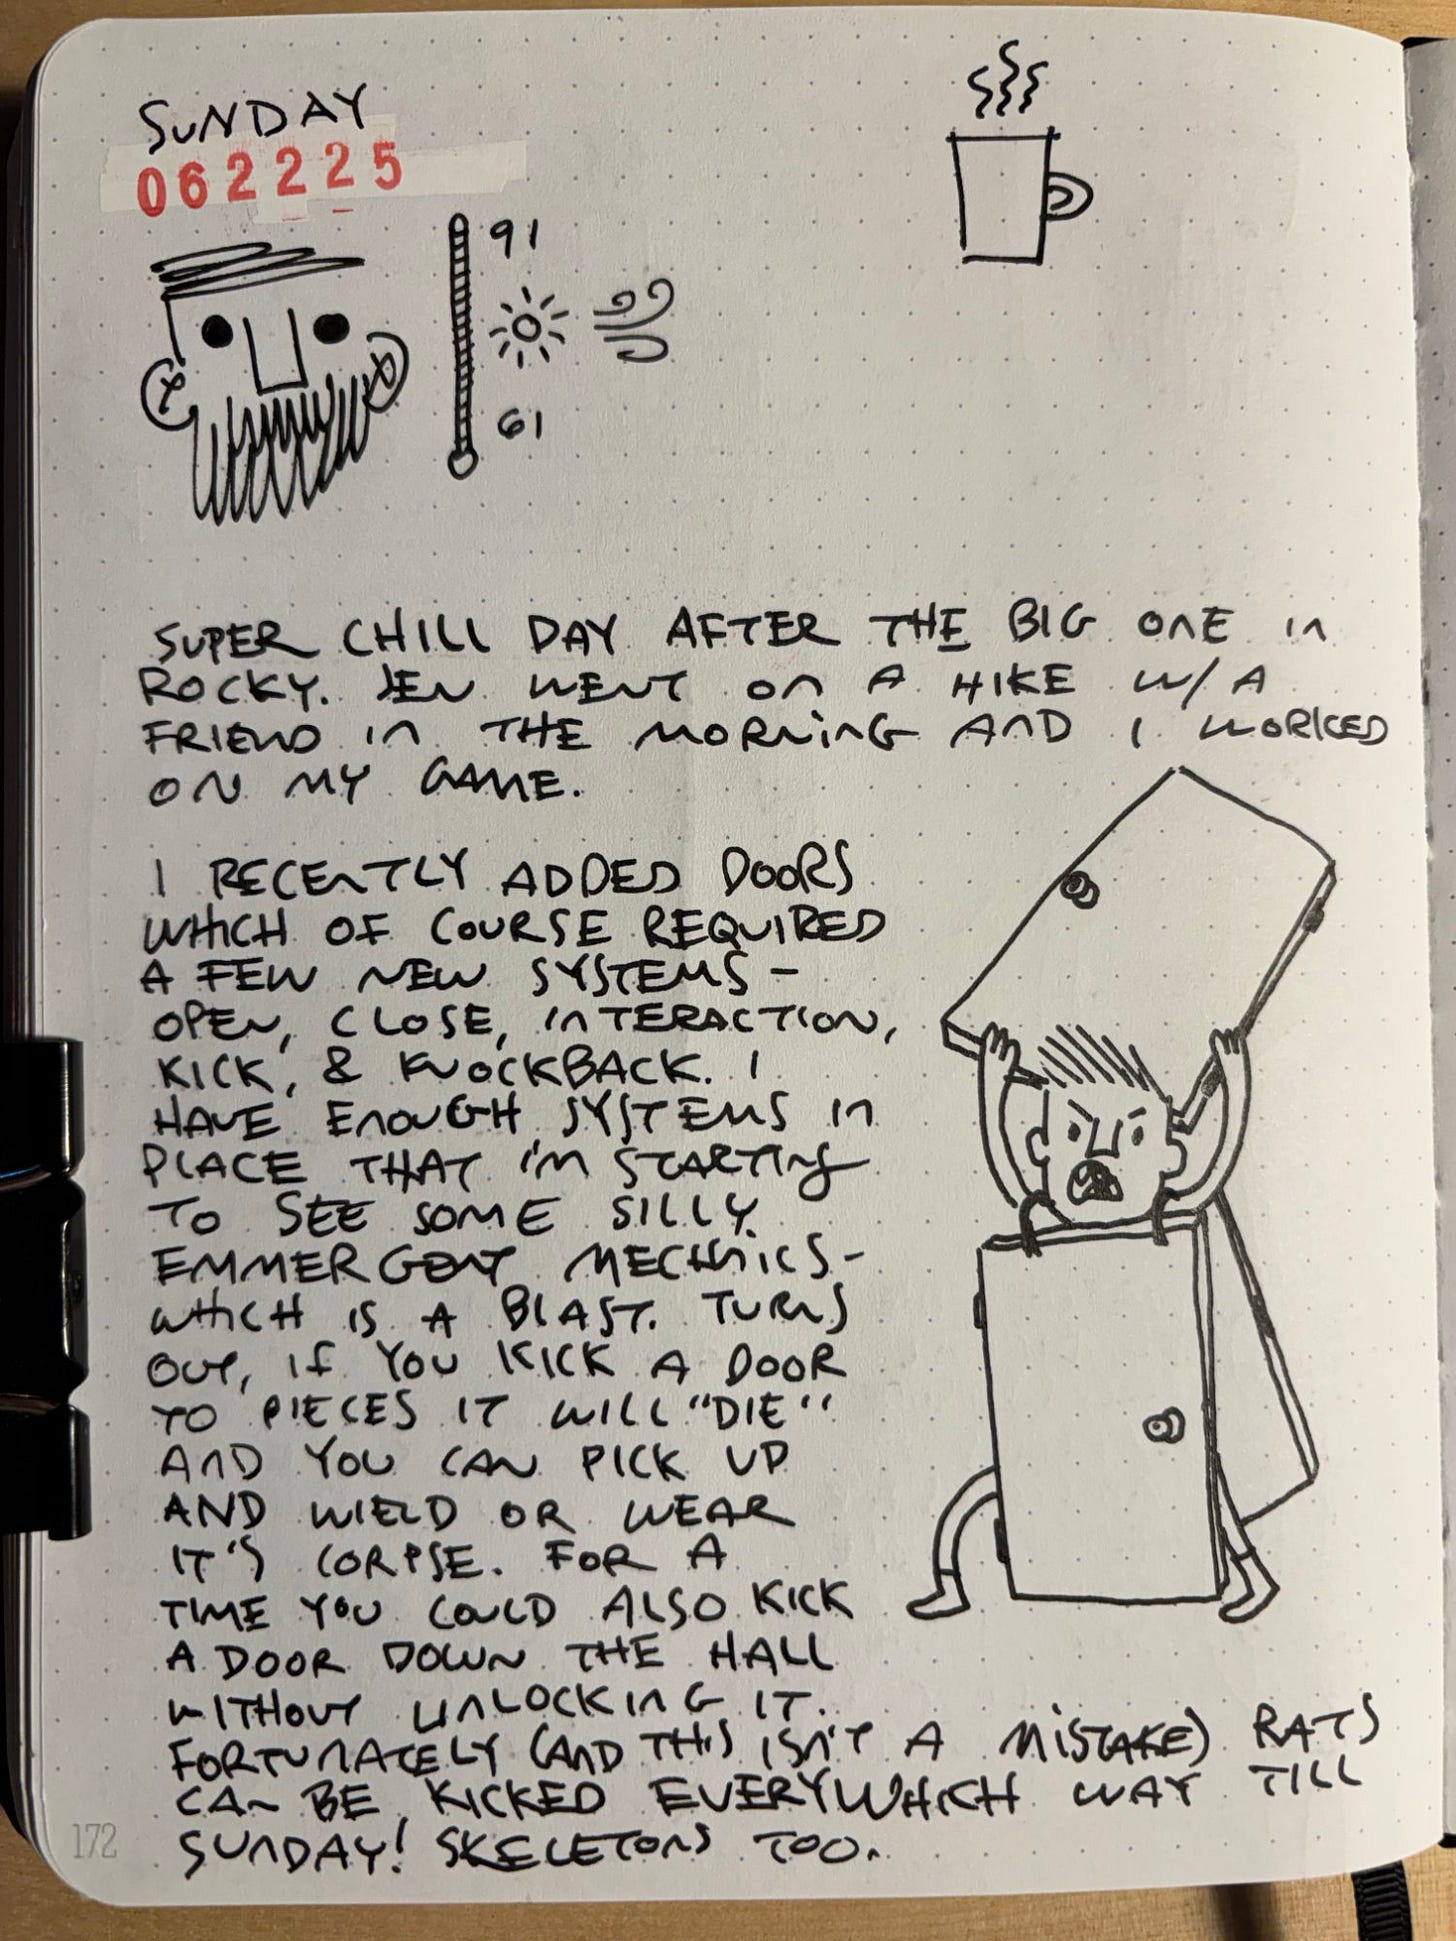 SUNDAY
062225
91
61
SUPER CHILL DAY AFTER THE BIG ONE IN
ROCKY. JEN WENT ON A HIKE W/ A
FRIEND IN THE MORNING AND I WORKED
ON MY GAME.
I RECENTLY ADDED DOORS
WHICH OF COURSE REQUIRED
A FEW NEW SYSTEMS –
OPEN, CLOSE, INTERACTION,
KICK, & KNOCKBACK. I
HAVE ENOUGH SYSTEMS IN
PLACE THAT I'M STARTING
TO SEE SOME SILLY
EMMERGENT MECHNICS –
WHICH IS A BLAST. TURNS
OUT, IF YOU KICK A DOOR
TO PIECES IT WILL "DIE"
AND YOU CAN PICK UP
AND WIELD OR WEAR
IT'S CORPSE. FOR A
TIME YOU COULD ALSO KICK
A DOOR DOWN THE HALL
WITHOUT UNLOCKING IT.
FORTUNATELY (AND THIS ISN'T A MISTAKE) RATS
CAN BE KICKED EVERYWHICH WAY TILL
SUNDAY! SKELETONS TOO.
172